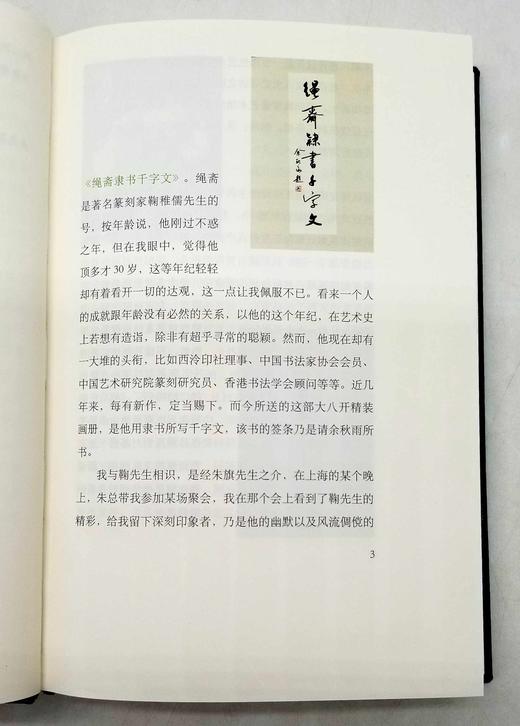 绳斋隶书千字文
余秋雨题
《绳斋隶书千字文》。绳斋
是著名篆刻家鞠稚儒先生的
号，按年龄说，他刚过不惑
之年，但在我眼中，觉得他
顶多才30岁，这等年纪轻轻
却有着看开一切的达观，这一点让我佩服不已。看来一个人
的成就跟年龄没有必然的关系，以他的这个年纪，在艺术史
上若想有造诣，除非有超乎寻常的聪颖。然而，他现在却有
一大堆的头衔，比如西泠印社理事、中国书法家协会会员、
中国艺术研究院篆刻研究员、香港书法学会顾问等等。近几
年来，每有新作，定当赐下。而今所送的这部大八开精装
画册，是他用隶书所写千字文，该书的签条乃是请余秋雨所
书。
我与鞠先生相识，是经朱旗先生之介，在上海的某个晚
上，朱总带我参加某场聚会，我在那个会上看到了鞠先生的
精彩，给我留下深刻印象者，乃是他的幽默以及风流倜傥的
3